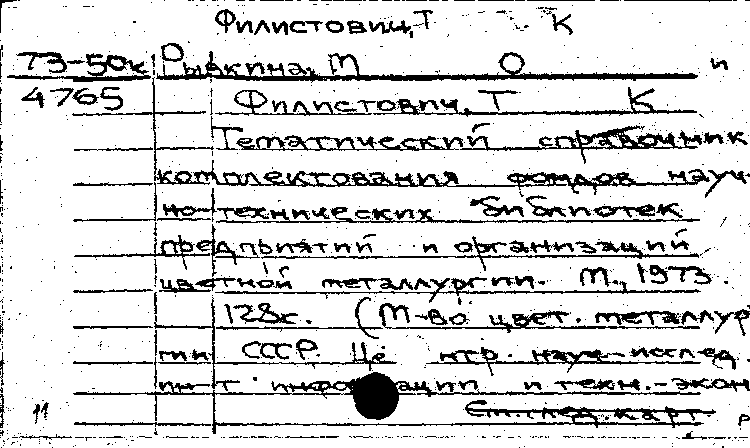 Филистович, Т К
73-50к Рыбкина, М О и
4765 Филистович, Т К
Тематический справочник
комплектования фондов науч-
но-технических библиотек
предприятий и организаций
цветной металлургии. М., 1973.
128с. (М-во цвет. металлур
гии СССР. Це нтр. науч-исслед.
ин-т информации и техн.-экон
Ст. след. карт